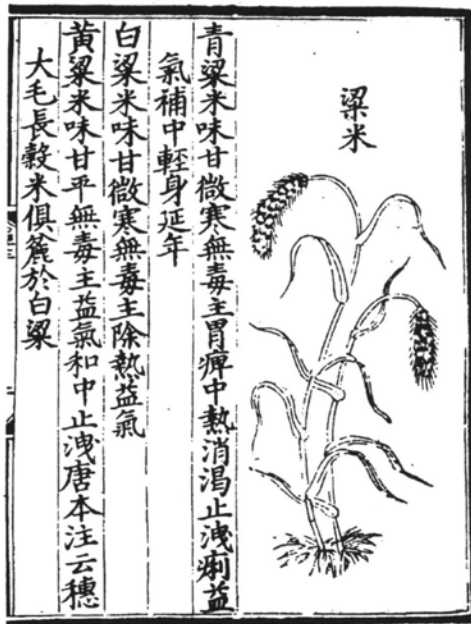 粱米
青粱米味甘微寒無毒主胃痺中熱消渴止洩痢益
氣補中輕身延年
白粱米味甘微寒無毒主除熱益氣
黃粱米味甘平無毒主益氣和中止洩唐本注云穗
大毛長穀米俱麄於白粱